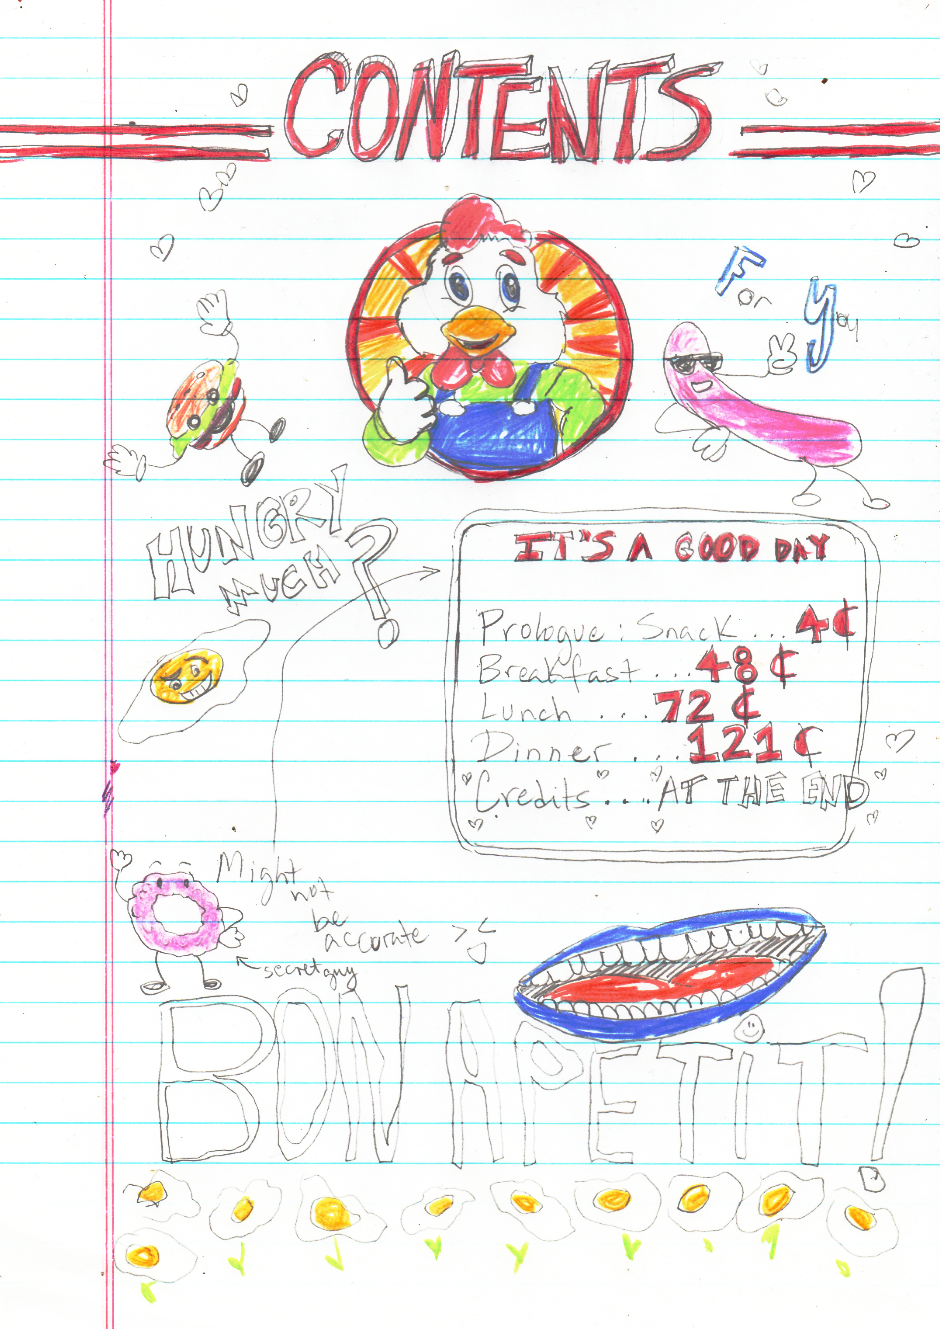 CONTENTS
For You
HUNGRY
MUCH?
IT'S A GOOD DAY
Prologue: Snack ... 4¢
Breakfast ... 48¢
Lunch ... 72¢
Dinner ... 121¢
Credits .... AT THE END
Might
not
be
accurate >:
secret guy
BON APETIT!